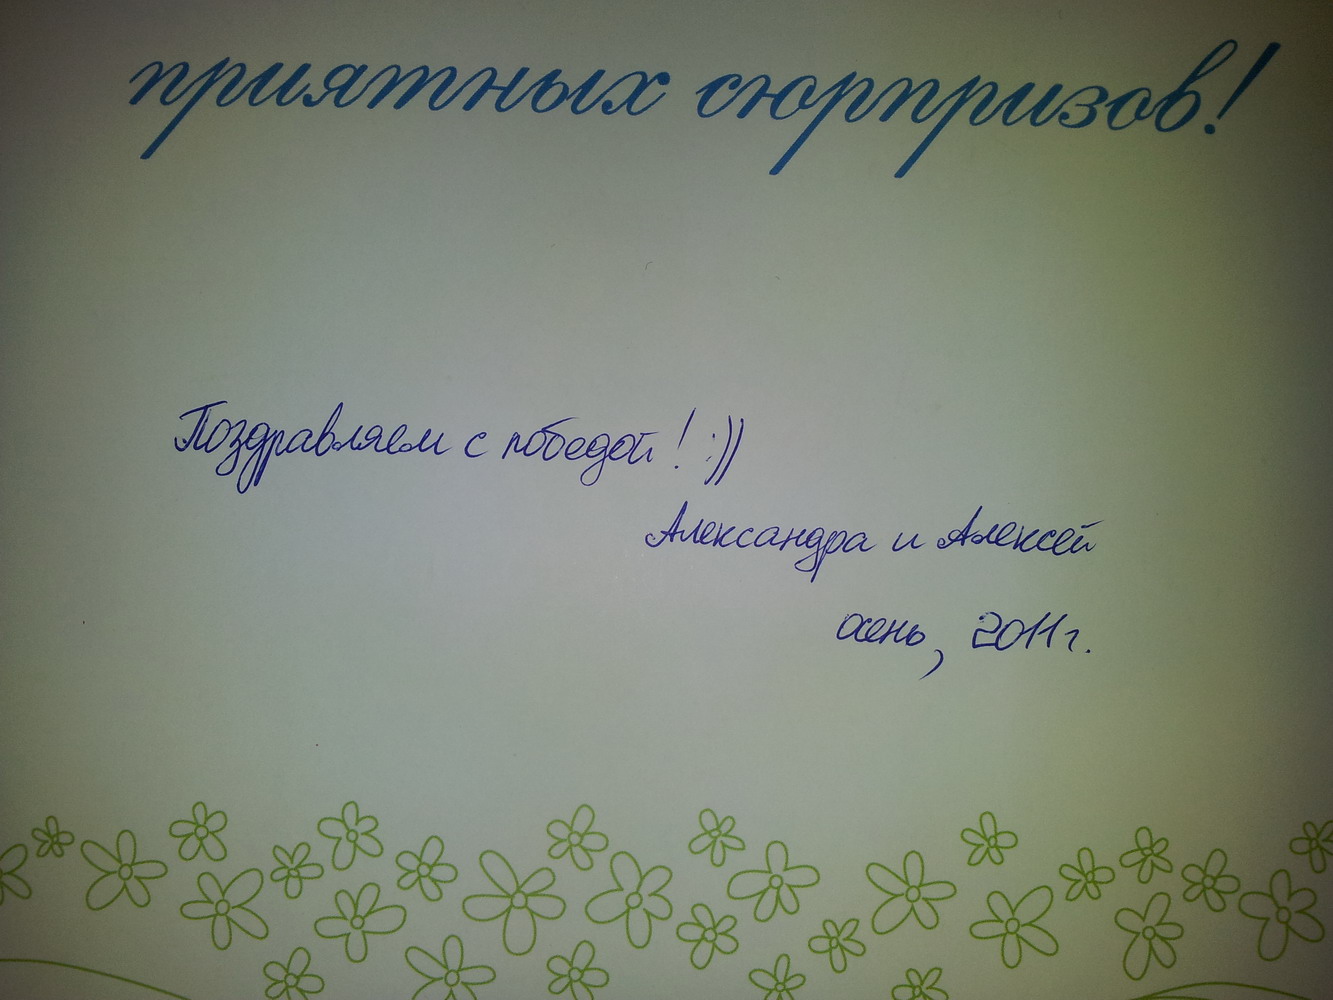 приятных сюрпризов!
Поздравляем с победой! :))
Александра и Алексей
осень, 2011г.